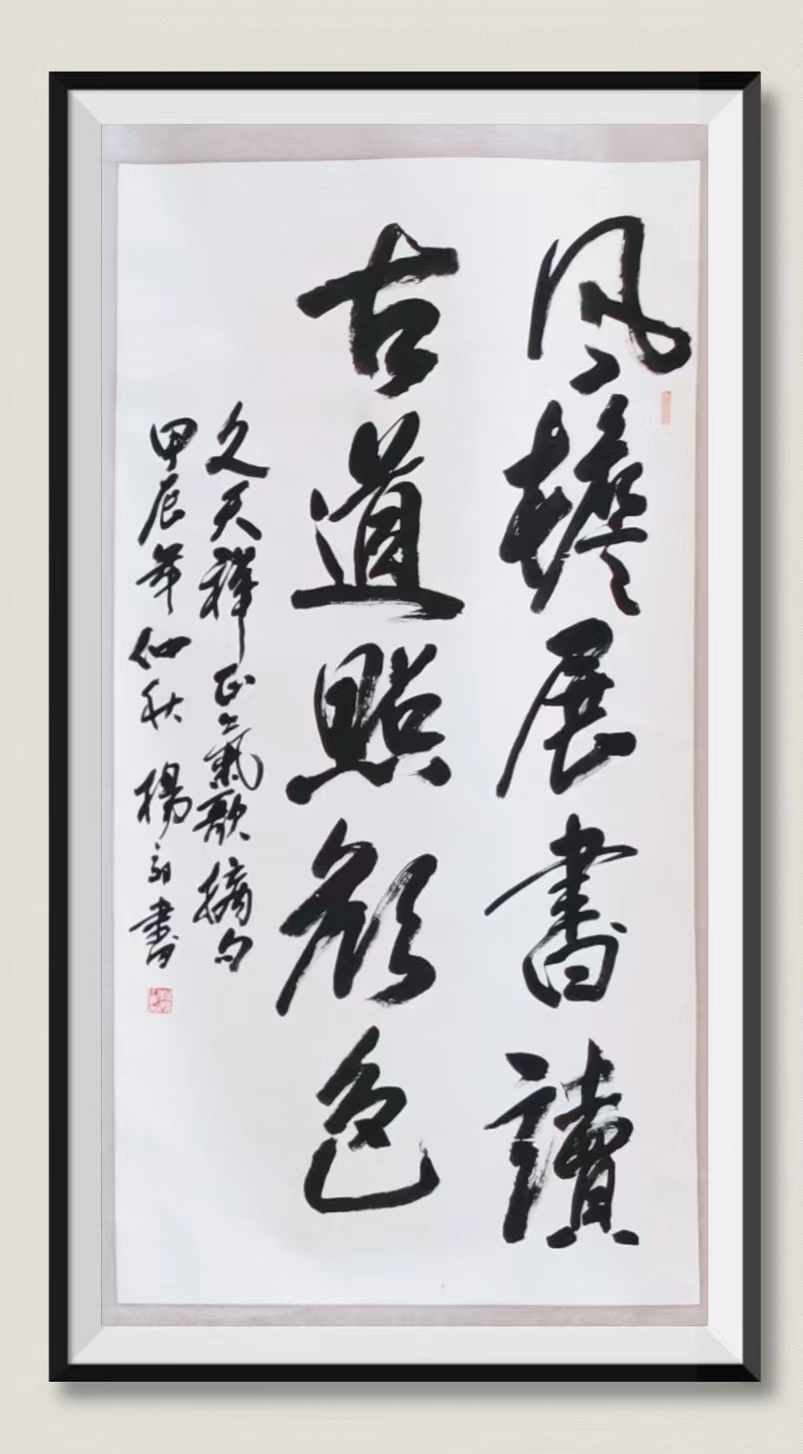 风檐展書讀
古道照顏色
文天祥正氣歌摘句
甲辰年仲秋 楊書